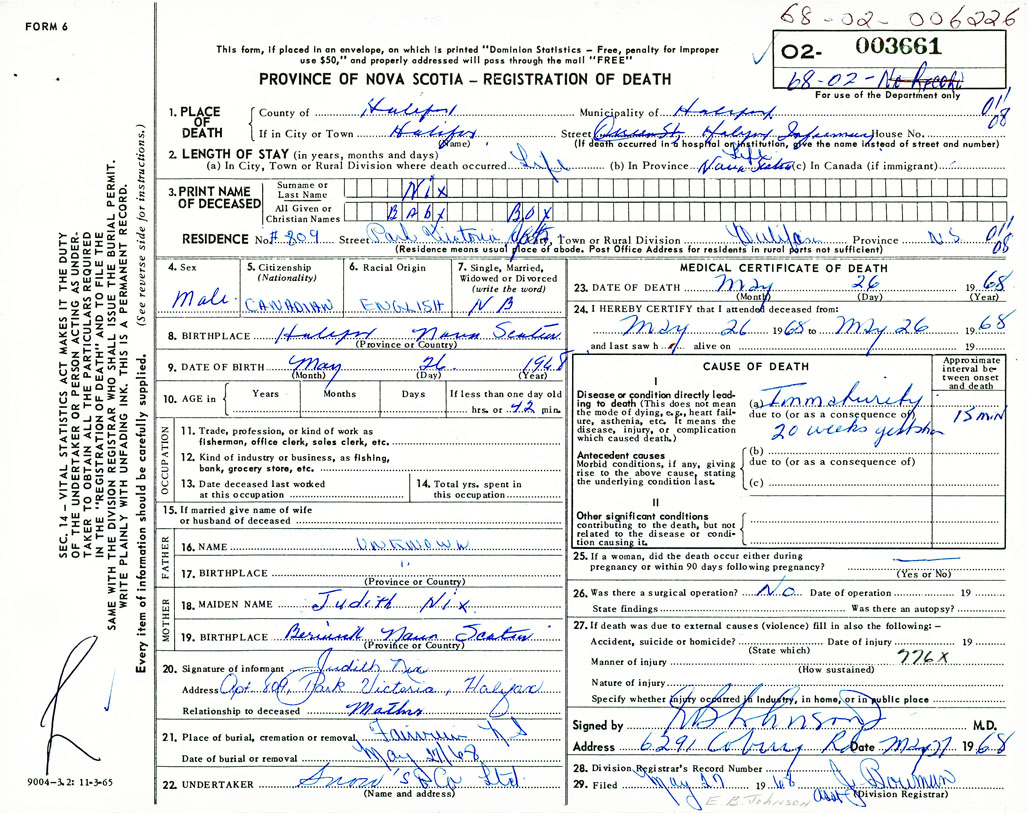 FORM 6
68-02-006226
02- 003661
68-02-
For use of the Department only
This form, if placed in an envelope, on which is printed "Dominion Statistics – Free, penalty for improper
use $50," and properly addressed will pass through the mail "FREE"
PROVINCE OF NOVA SCOTIA – REGISTRATION OF DEATH
SEC. 14 – VITAL STATISTICS ACT MAKES IT THE DUTY
OF THE UNDERTAKER OR PERSON ACTING AS UNDER-
TAKER TO OBTAIN ALL THE PARTICULARS REQUIRED
IN THE "REGISTRATION OF DEATH" AND TO FILE THE
SAME WITH THE DIVISION REGISTRAR WHO SHALL ISSUE THE BURIAL PERMIT.
WRITE PLAINLY WITH UNFADING INK. THIS IS A PERMANENT RECORD.
Every item of information should be carefully supplied. (See reverse side for instructions.)
1. PLACE OF DEATH
County of Halifax Municipality of Halifax 011
If in City or Town Halifax Street Queen St, Halifax Infirmary House No. 08
(Name) (If death occurred in a hospital or institution, give the name instead of street and number)
2. LENGTH OF STAY (in years, months and days)
(a) In City, Town or Rural Division where death occurred Life (b) In Province Life Nova Scotia (c) In Canada (if immigrant)
3. PRINT NAME OF DECEASED
Surname or Last Name NIX
All Given or Christian Names BABY BOY
RESIDENCE No. #809 Street Park Victoria Apts City, Town or Rural Division Province NS 011
(Residence means usual place of abode. Post Office Address for residents in rural parts not sufficient) 08
4. Sex
Male
5. Citizenship
(Nationality)
CANADIAN
6. Racial Origin
ENGLISH
7. Single, Married,
Widowed or Divorced
(write the word)
NB
8. BIRTHPLACE Halifax Nova Scotia
(Province or Country)
9. DATE OF BIRTH May 26 1968
(Month) (Day) (Year)
10. AGE in
Years Months Days If less than one day old
hrs. or 42 min.
OCCUPATION
11. Trade, profession, or kind of work as
fisherman, office clerk, sales clerk, etc.
12. Kind of industry or business, as fishing,
bank, grocery store, etc.
13. Date deceased last worked
at this occupation
14. Total yrs. spent in
this occupation
15. If married give name of wife
or husband of deceased
FATHER
16. NAME UNKNOWN
17. BIRTHPLACE "
(Province or Country)
MOTHER
18. MAIDEN NAME Judith Nix
19. BIRTHPLACE Nova Scotia
(Province or Country)
20. Signature of informant Judith Nix
Address Apt. 809, Park Victoria, Halifax
Relationship to deceased Mother
21. Place of burial, cremation or removal Fairview NS
Date of burial or removal May 27/68
22. UNDERTAKER Snow's & Co Ltd.
(Name and address)
MEDICAL CERTIFICATE OF DEATH
23. DATE OF DEATH May 26 1968
(Month) (Day) (Year)
24. I HEREBY CERTIFY that I attended deceased from:
May 26 1968 to May 26 1968
and last saw h alive on 19
CAUSE OF DEATH
Approximate
interval be-
tween onset
and death
I
Disease or condition directly lead-
ing to death (This does not mean
the mode of dying, e.g., heart fail-
ure, asthenia, etc. It means the
disease, injury, or complication
which caused death.)
(a) Immaturity 15 min
due to (or as a consequence of)
20 weeks gestation
Antecedent causes
Morbid conditions, if any, giving
rise to the above cause, stating
the underlying condition last.
(b)
due to (or as a consequence of)
(c)
II
Other significant conditions
contributing to the death, but not
related to the disease or condi-
tion causing it.
25. If a woman, did the death occur either during
pregnancy or within 90 days following pregnancy?
(Yes or No)
26. Was there a surgical operation? No Date of operation 19
State findings Was there an autopsy?
27. If death was due to external causes (violence) fill in also the following: –
Accident, suicide or homicide? Date of injury 19
(State which)
Manner of injury 776X
(How sustained)
Nature of injury
Specify whether injury occurred in industry, in home, or in public place
Signed by Johnson M.D.
Address 6291 Coburg Rd Date May 27 1968
28. Division Registrar's Record Number
29. Filed May 27 1968 asst J. Bowman
(Division Registrar)
E. B. Johnson
9004-3.2: 11-3-65